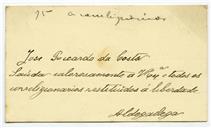 75
João Ricardo da Costa
Saúda calorosamente a V. Ex.ª e todos os
correligionarios restituidos á liberdade
Aldegallega